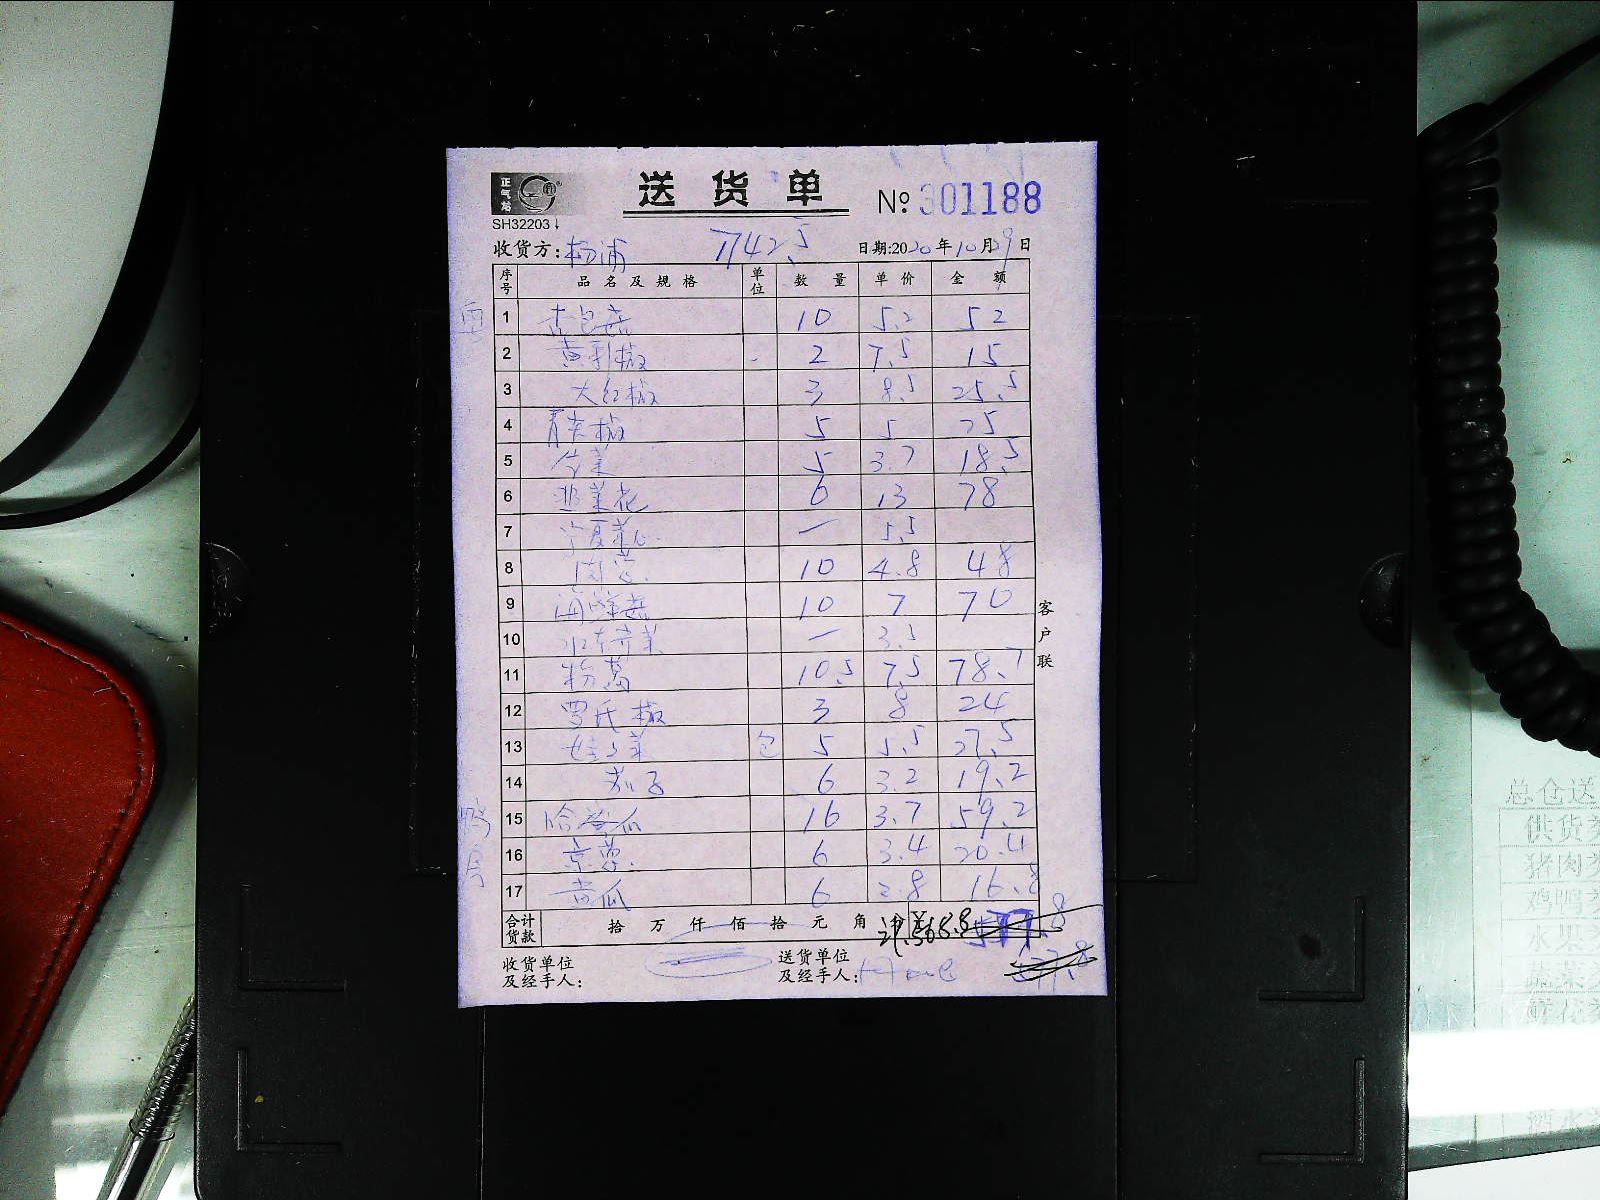 正气站
送货单
№ 301188
SH32203
收货方: 杨浦
日期:2020年10月9日
序号 品名及规格 单位 数量 单价 金额
1 杏包菇 10 5.2 52
2 黄彩椒 2 7.5 15
3 大红椒 3 8.5 25.5
4 青尖椒 5 5 25
5 5 3.7 18.5
6 韭菜花 6 13 78
7 宁夏菜心 一 5.5
8 10 4.8 48
9 海鲜菇 10 7 70
10 一 3.5
11 粉葛 10.5 7.5 78.7
12 罗氏椒 3 8 24
13 娃娃菜 包 5 5.5 27.5
14 茄子 6 3.2 19.2
15 16 3.7 59.2
16 京葱 6 3.4 20.4
17 黄瓜 6 2.8 16.8
合计货款 拾 万 仟 佰 拾 元 角 分 ¥
收货单位及经手人:
送货单位及经手人:
客户联
总仓送
供货
猪肉
鸡鸭
水果
蔬菜
鲜花
酒水